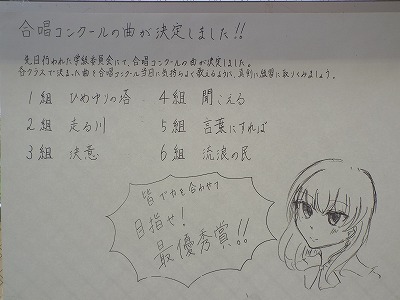 合唱コンクールの曲が決定しました!!
先日行われた学級委員会にて、合唱コンクールの曲が決定しました。
各クラスで決まった曲を合唱コンクール当日に気持ちよく歌えるように、真剣に練習に取りくみましょう。
1組 ひめゆりの塔 4組 聞こえる
2組 走る川 5組 言葉にすれば
3組 決意 6組 流浪の民
皆で力を合わせて
目指せ!
最優秀賞!!